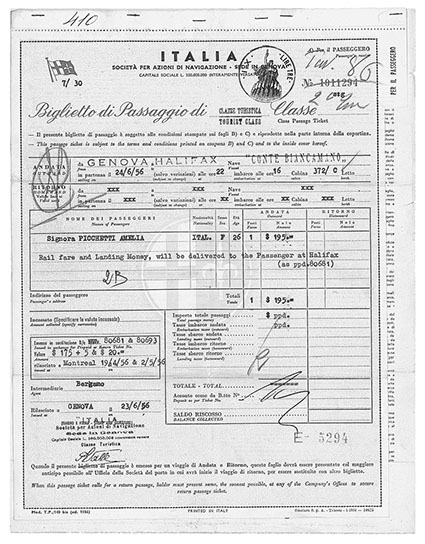 410
ITALIA
SOCIETÀ PER AZIONI DI NAVIGAZIONE - SEDE IN GENOVA
7/30
Per il PASSEGGERO
№ 1011294
Biglietto di Passaggio di CLASSE TURISTICA Classe
TOURIST CLASS Class Passage Ticket
— Il presente biglietto di passaggio è soggetto alle condizioni stampate sui fogli B) e C) e riprodotte nella parte interna della copertina.
This passage ticket is subject to the terms and conditions printed on coupons B) and C) and to the inside cover hereof.
ANDATA da GENOVA, HALIFAX Nave "CONTE BIANCAMANO"
in partenza il 24/6/56 (salvo variazioni) alle ore 22 imbarco alle ore 16 Cabina 372/0 Letto
RITORNO da xxx a xxx Nave xxx
in partenza il xxx (salvo variazioni) alle ore imbarco alle ore Cabina Letto
NOME DEI PASSEGGERI Nazionalità Sesso Età ANDATA RITORNO
Names of Passengers
Signora PICCHETTI AMELIA ITAL. F 26 1 $ 195.=
Rail fare and Landing Money, will be delivered to the Passenger at Halifax
(as ppd.80681)
2B
Indirizzo del passeggero
Passenger's address
Totali 1 $ 195.=
Incassato (Specificare la valuta incassata)
Amount collected (specify currency)
Importo totale passaggi $ ppd.
Total passage money
Tasse imbarco andata ppd.
Embarkation taxes (outward)
Tasse sbarco andata
Landing taxes (outward)
Tasse imbarco ritorno
Embarkation taxes (return)
Tasse sbarco ritorno
Landing taxes (return)
Emesso in sostituzione 80681 & 80693
Valuta $ 175 + 5 & $ 20.=
rilasciato Montreal 19/4/56 & 2/5/56
TOTALE - TOTAL
Intermediario Bergamo
Agent
Acconto come da B.tto N°
Deposit as per Ticket No.
Rilasciato a GENOVA 23/6/56
SALDO RISCOSSO
BALANCE COLLECTED
"ITALIA"
Società per Azioni di Navigazione
Sede in Genova
Classe Turistica
E- 3294
Quando il presente biglietto di passaggio è emesso per un viaggio di Andata e Ritorno, questo foglio dovrà essere presentato col maggiore
anticipo possibile all'Ufficio della Società del porto in cui avrà inizio il viaggio di ritorno, per essere sostituito con altro biglietto.
When this passage ticket calls for a return passage, holder must present same, the soonest possible, at any of the Company's Offices to secure
return passage ticket.
PRINTED IN ITALY
PER IL PASSEGGERO